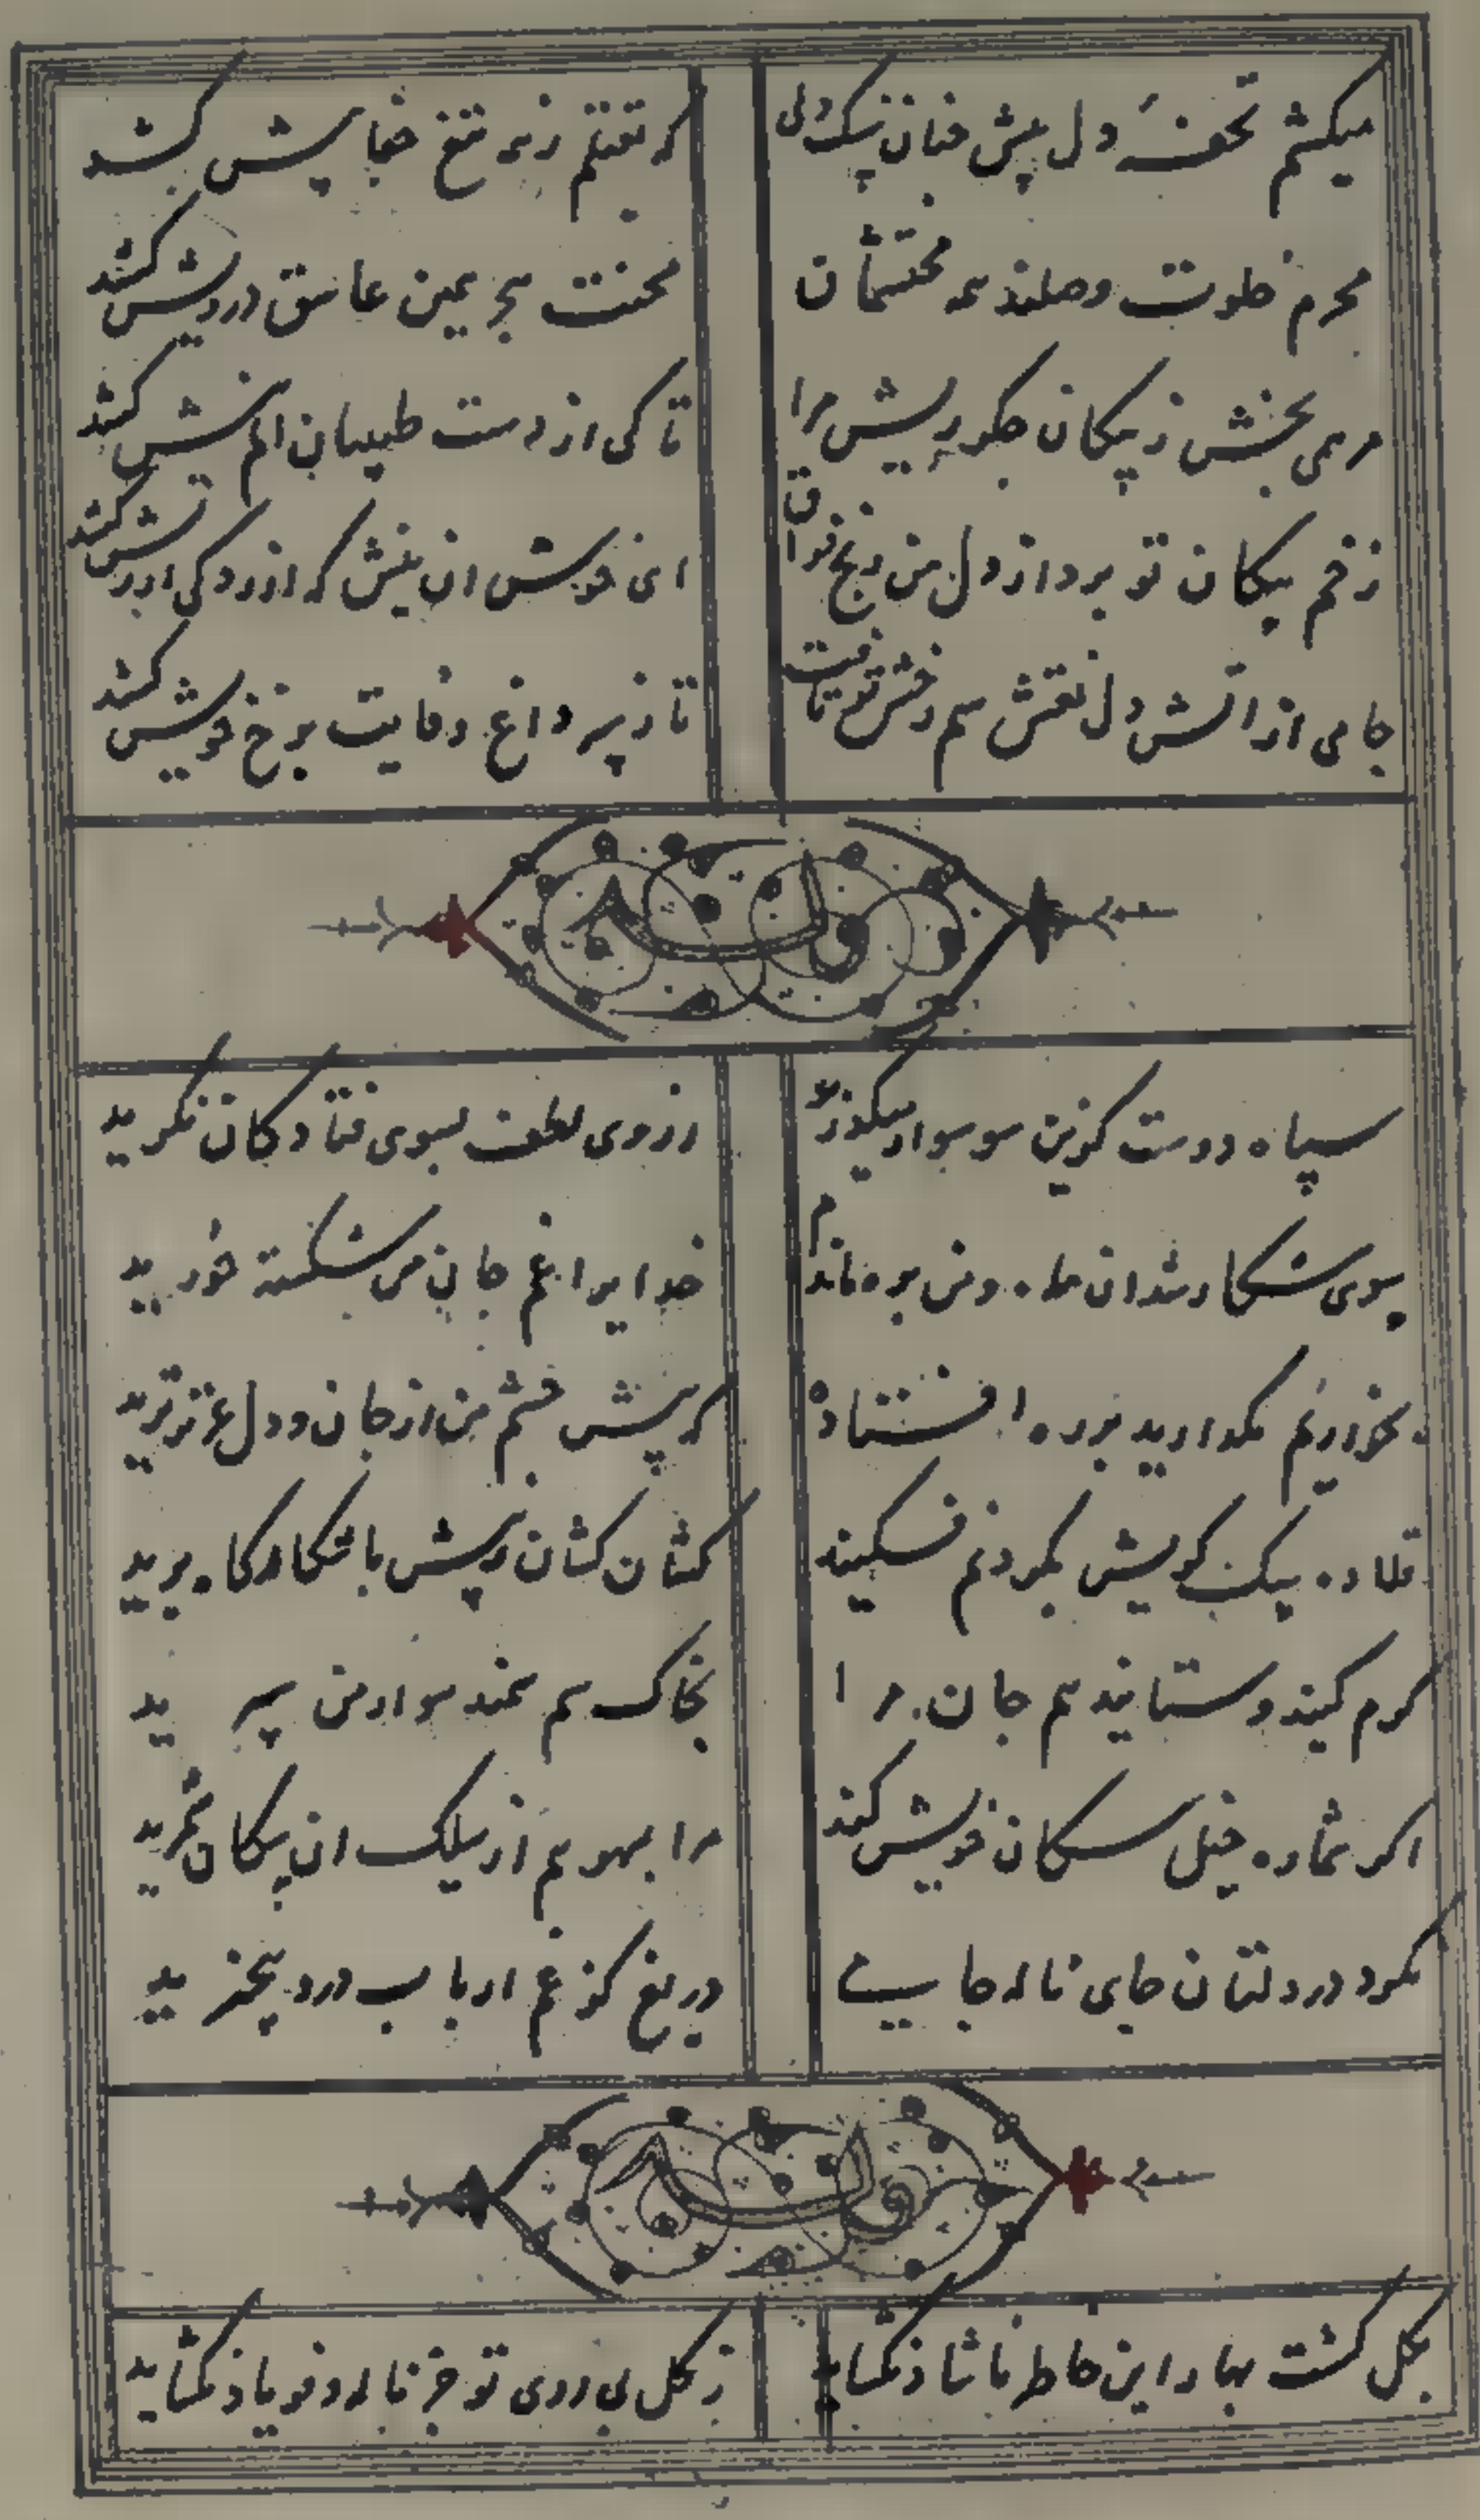 میکشم تحفهٔ دل پیش چنان سنک دلی
که بقتلم ز نی تیغ جفا پیش کشد
محرم خلوت وصلند همه محتشمان
محنت هجر همین عاشق درویش کشد
مرهمی بخش ز پیکان جکر ریش مرا
تا کی از دست طبیبان الم نیش کشد
زخم پیکان تو برد از دل من رنج فراق
ای خوش ان نیش که ازردکی از ریش کشد
جامی از اتش دل نقش سم رخش تو تافت
تا ز پی داغ وفایت برخ خویش کشد
سپاه دوست کزین سو سوار میکذرید
ز روی لطف بسوی فتادکان نکرید
بسوی شکار شد ان ماه و من بره ماندم
خدایرا غم جان من شکسته خورید
بخواریم مکذارید بر ره افتاده
که پیش چشم من از جان و دل عزیزترید
قلاده سک کویش بکردنم فکنید
کشان کشان ز پیش تا شکارکاه برید
کرم کنید و ستانید هم جان مرا
بخاک سم سمند سوار من سپرید
اکر شماره خیل سکان خویش کند
مرا بهر هم از سلک ان سکان شمرید
نکرد در دلتان جای ناله جامی
دریغ کز غم ارباب درد بیخبرید
بکل کشت بهار این خاطر ناشاد نکشاید
ز کل بی روی تو جز ناله و فریاد نکشاید